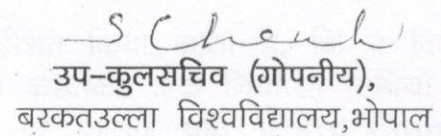 उप-कुलसचिव (गोपनीय),
बरकतउल्ला विश्वविद्यालय,भोपाल